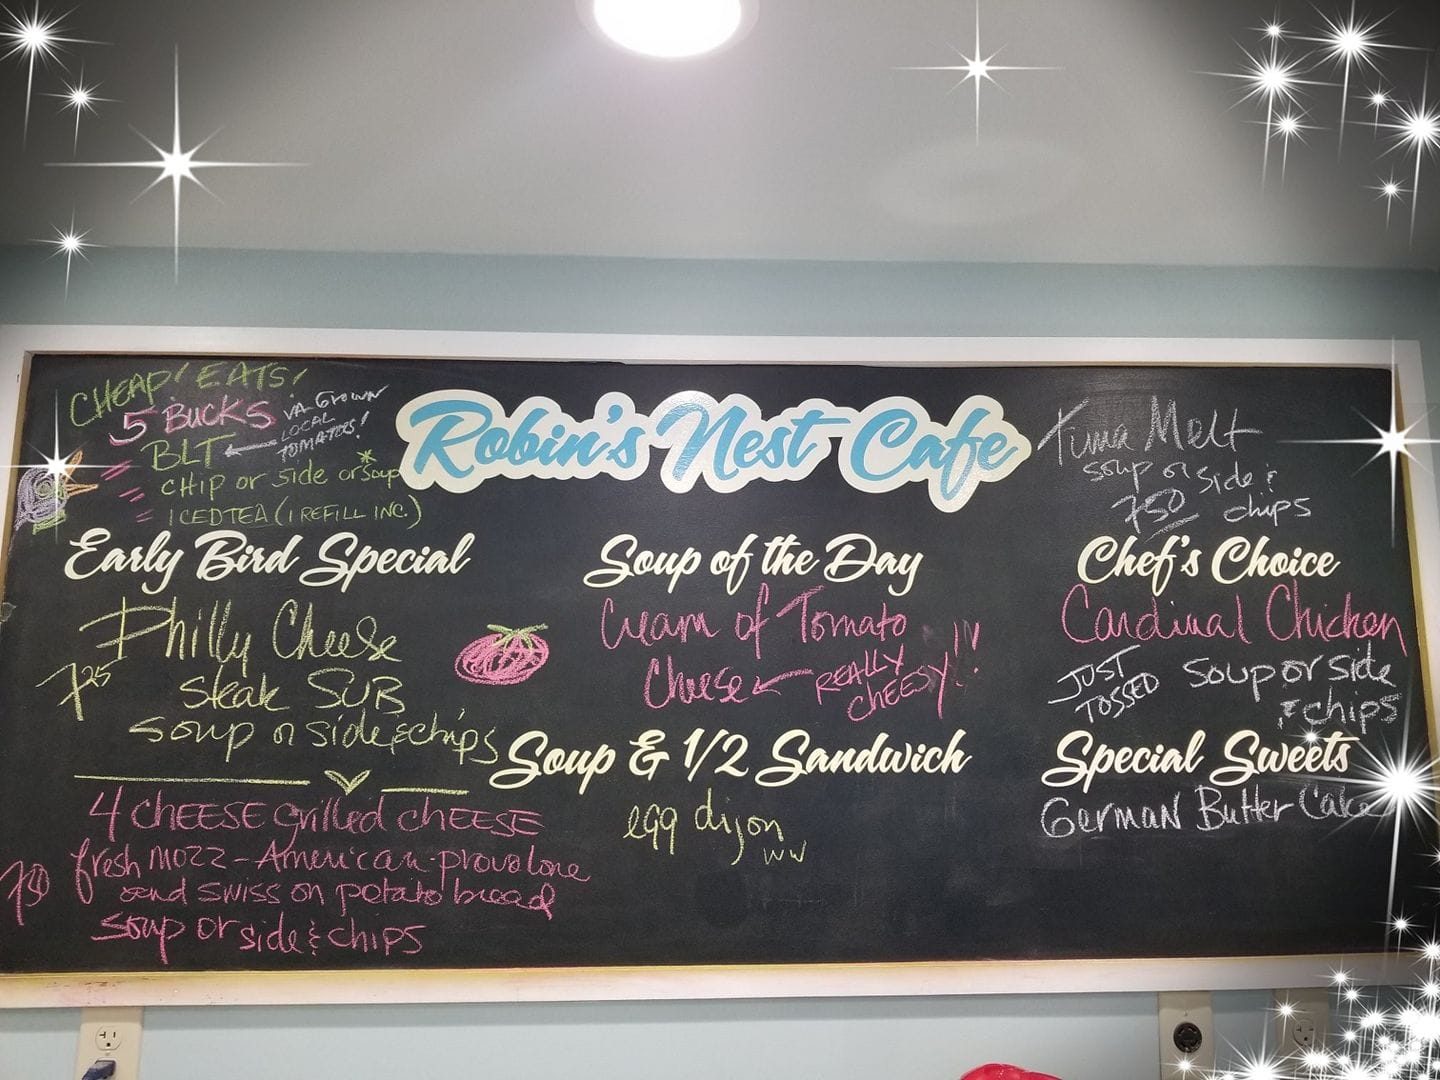 CHEAP! EATS!
5 BUCKS
VA-GROWN
LOCAL
TOMATOES!
BLT
CHIP or side or *soup
ICED TEA (1 REFILL INC.)
Robin's Nest Cafe
Tuna Melt
soup or side &
750 chips
Early Bird Special
Philly Cheese
725 steak SUB
soup or side & chips
4 CHEESE grilled CHEESE
fresh mozz - American - provolone
and swiss on potato bread
750
soup or side & chips
Soup of the Day
Cream of Tomato
Cheese REALLY
CHEESY!!!
Soup & 1/2 Sandwich
egg dijon
ww
Chef's Choice
Cardinal Chicken
JUST
TOSSED
soup or side
& chips
Special Sweets
German Butter Cake